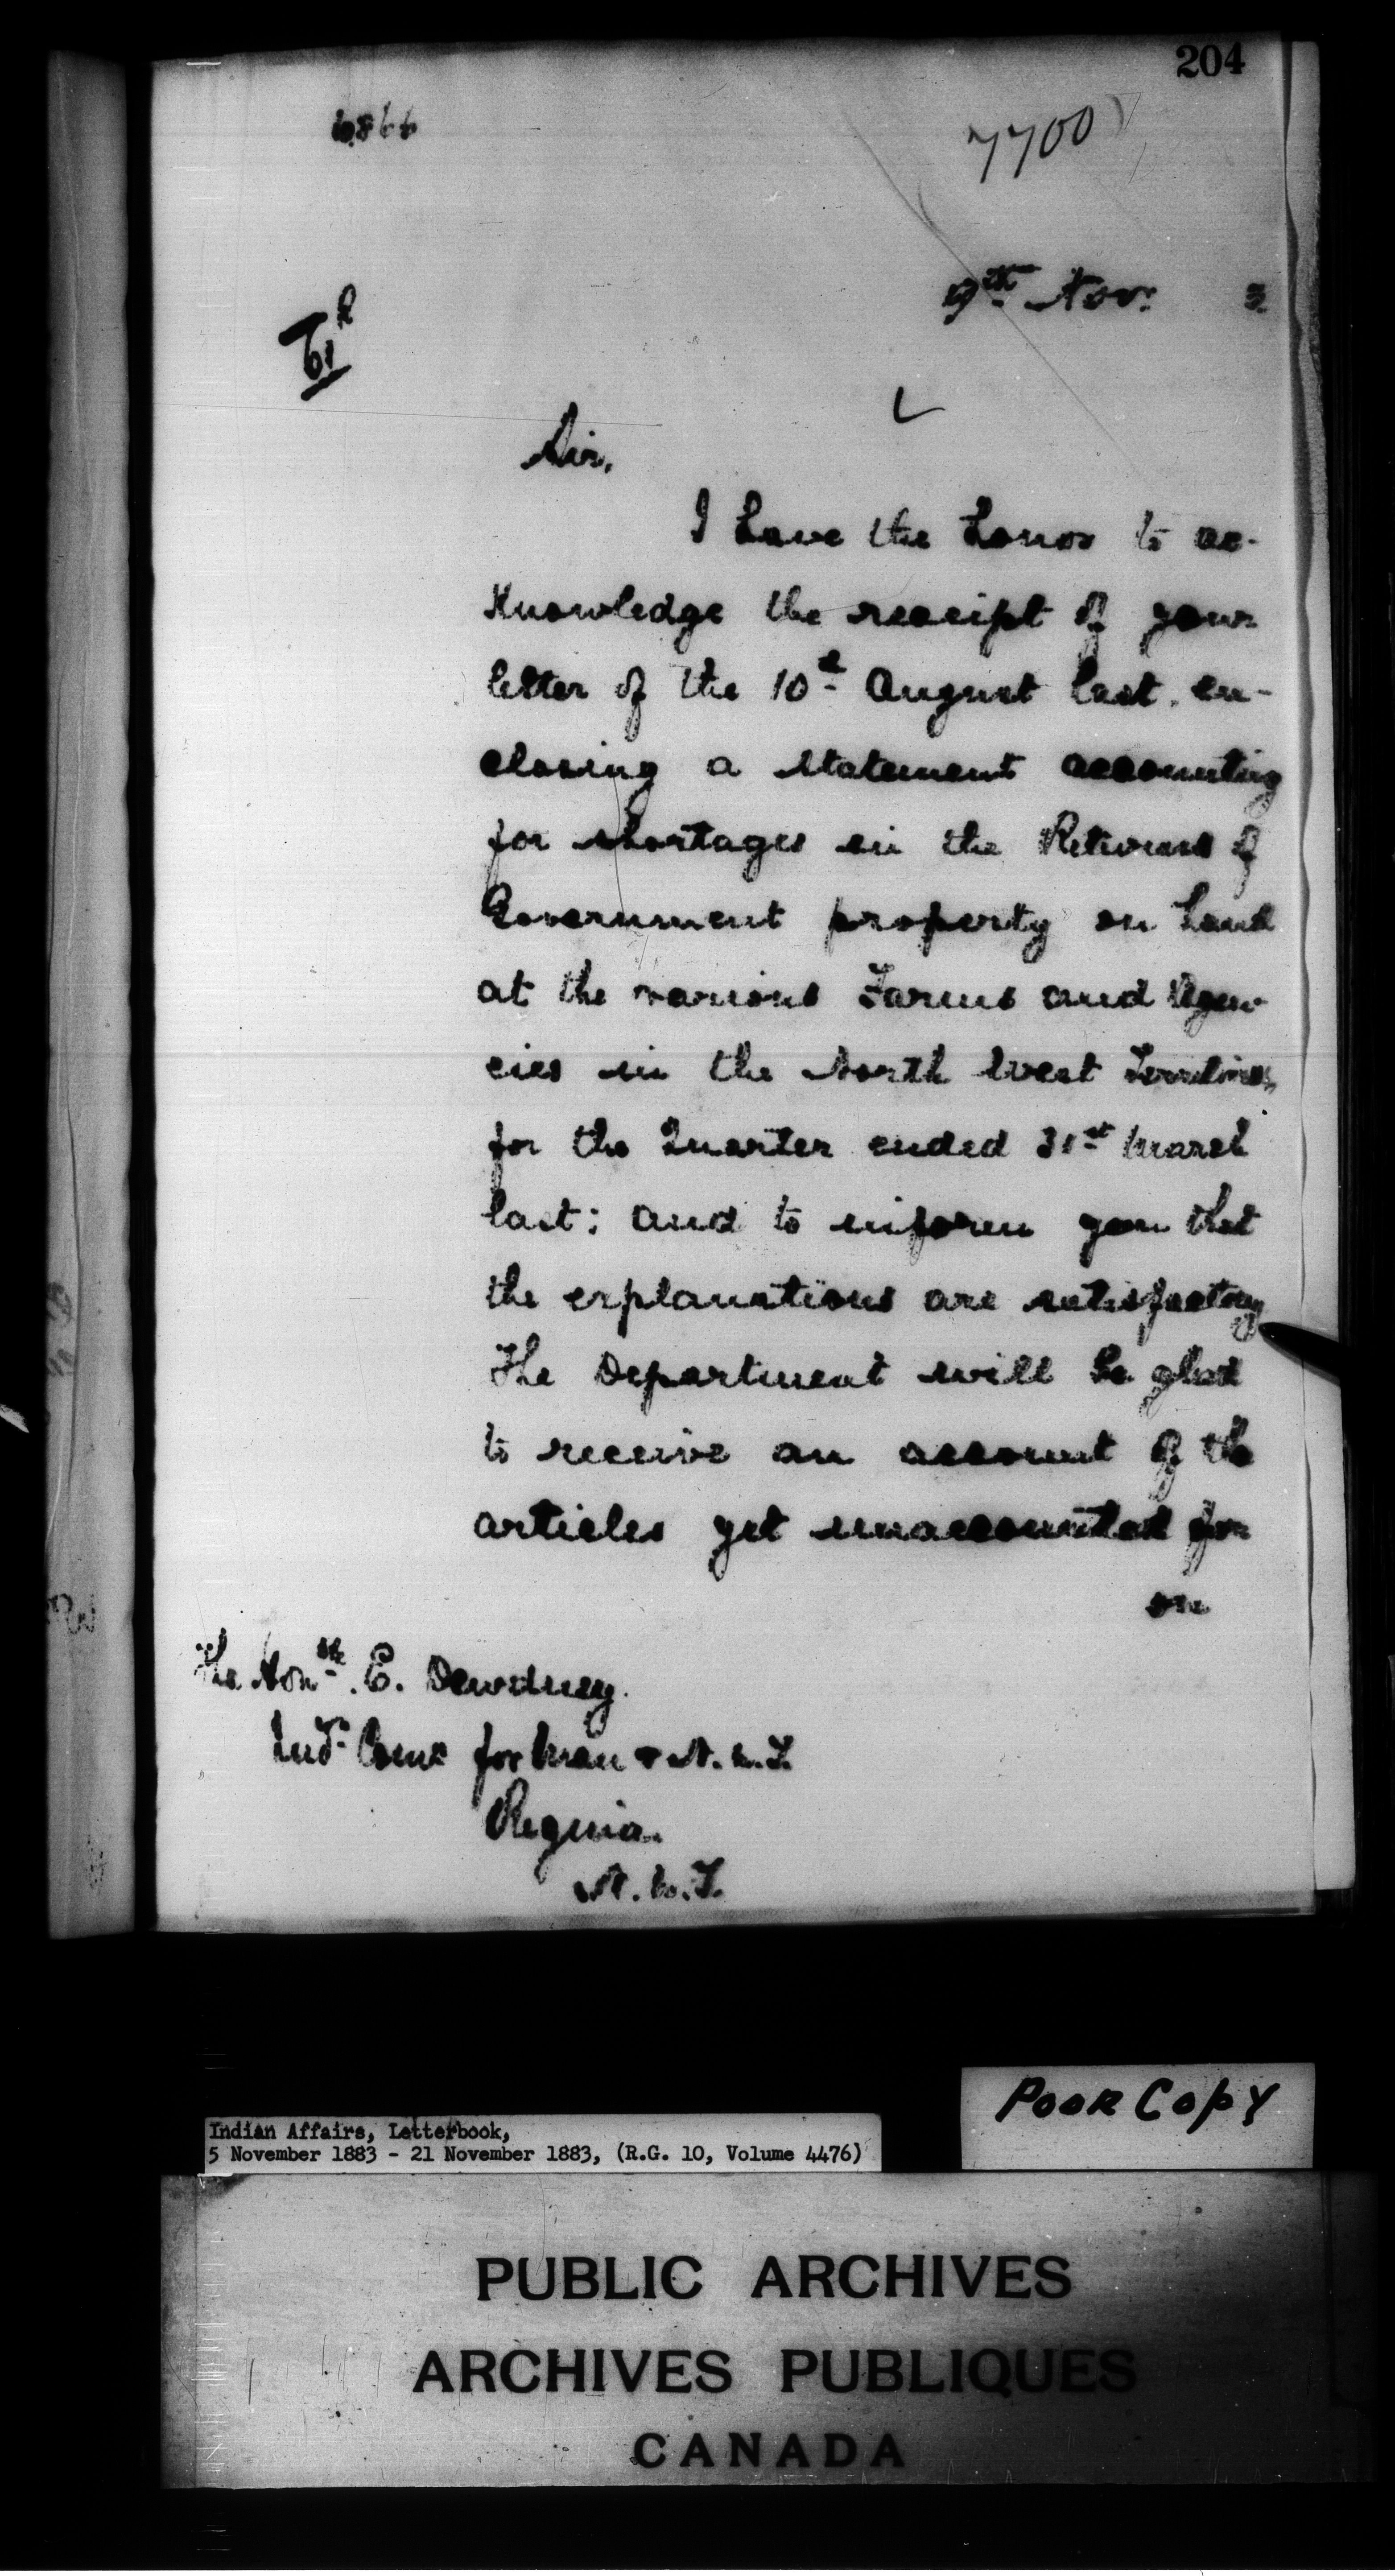 204
7700
9th Nov: 3
Sir,
I have the honor to ac-
knowledge the receipt of your
letter of the 10th August last, en-
closing a statement accounting
for shortages in the Returns of
Government property on hand
at the various Farms and Agen-
cies in the North West Territories,
for the Quarter ended 31st March
last: and to inform you that
the explanations are satisfactory
The Department will be glad
to receive an account of the
articles yet unaccounted for
on
The Honble. E. Dewdney.
Ind. Comr for Man & N.W.T.
Regina.
N.W.T.
POOR COPY
Indian Affairs, Letterbook,
5 November 1883 - 21 November 1883, (R.G. 10, Volume 4476)
PUBLIC ARCHIVES
ARCHIVES PUBLIQUES
CANADA